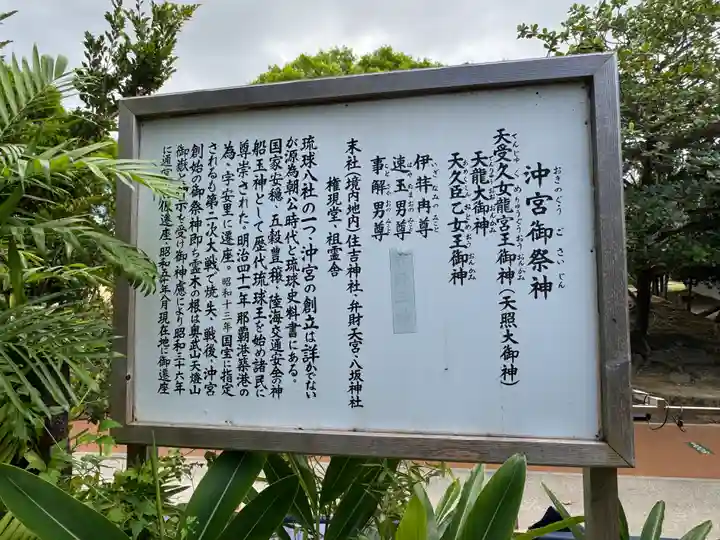 沖宮御祭神
おきのぐう ごさいじん
天受久女龍宮王御神(天照大御神)
天龍大御神
天久臣乙女王御神
伊弉冉尊
いざなみのみこと
速玉男尊
はやたまおのみこと
事解男尊
ことさかおのみこと
末社(境内地内)住吉神社・弁財天宮・八坂神社
権現堂・祖霊舎
琉球八社の一つ、沖宮の創立は詳かでない
が源為朝公時代と琉球史料書にある。
国家安穏、五穀豊穣、陸海交通安全の神
船玉神として歴代琉球王を始め諸民に
尊崇された。明治四十一年那覇港築港の
為、字安里に遷座。昭和十三年国宝に指定
されるも第二次大戦で焼失、戦後、沖宮
創始の御祭神即ち霊木の根は奥武山天燈山
御嶽の
を受け御神慮により昭和三十六年
に通
遷座、昭和五十年八月現在地に御遷座